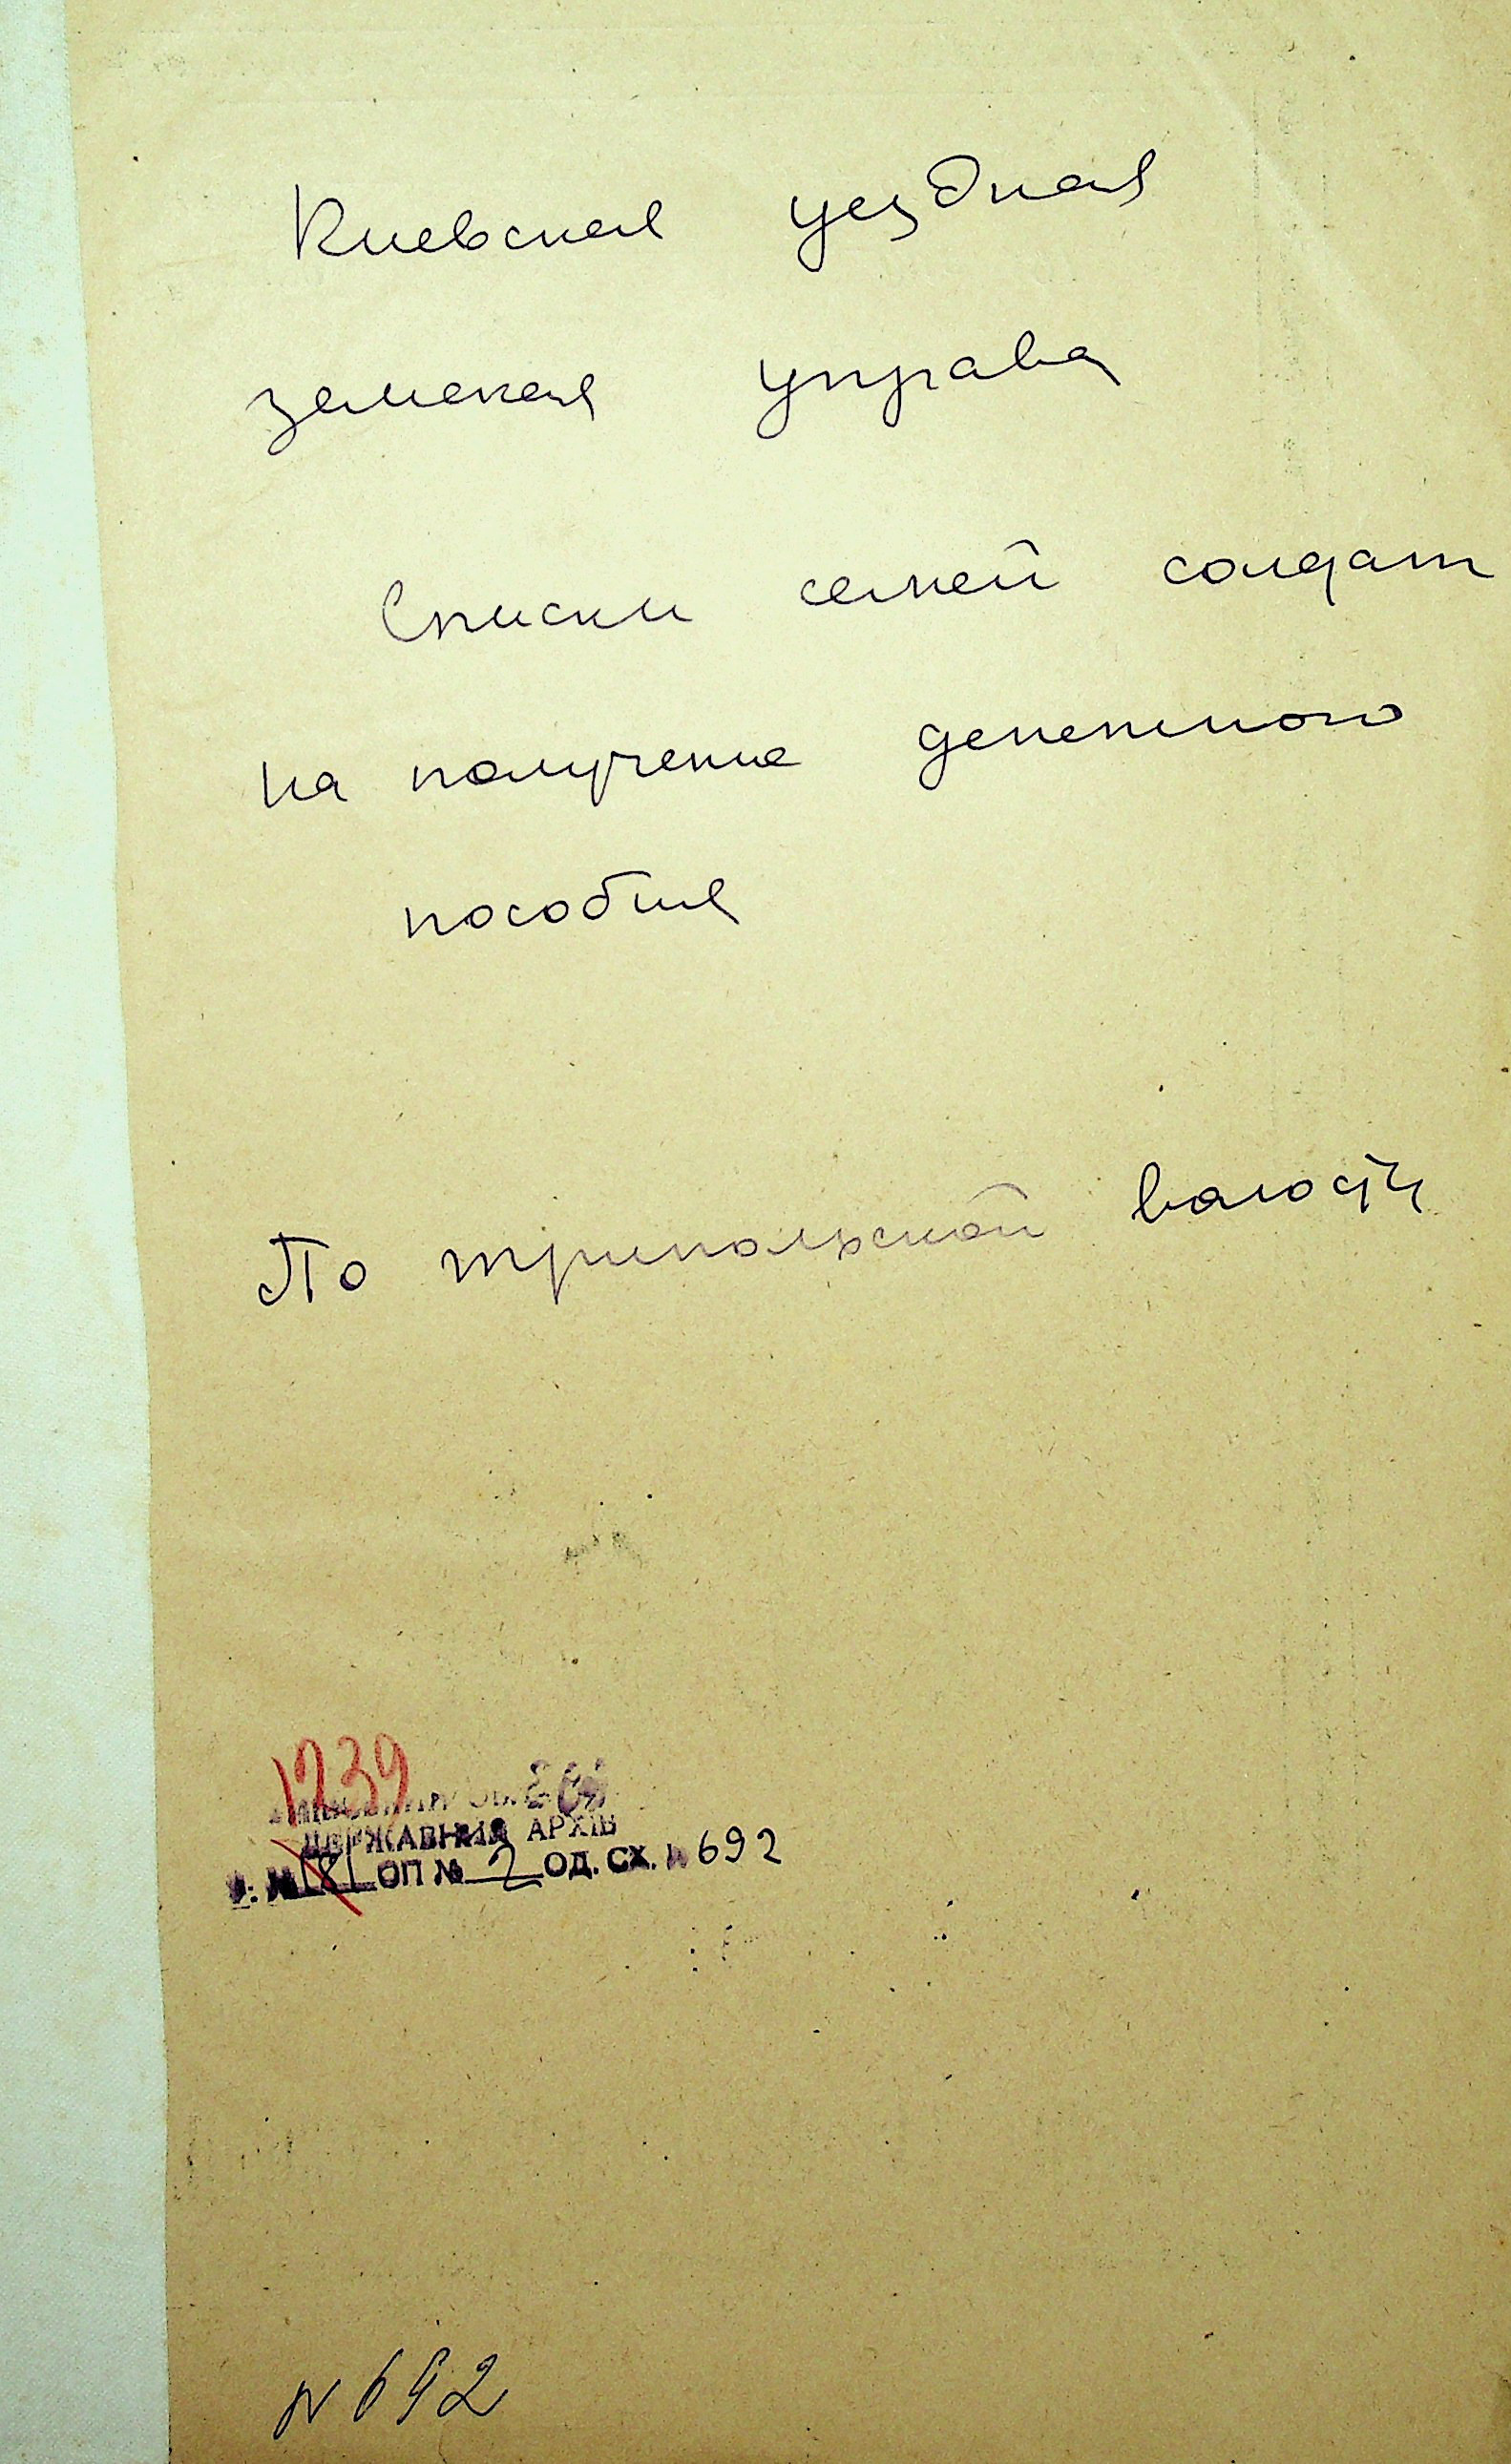 Киевская уездная
земская управа
Списки семей солдат
на получение денежного
пособия
По трипольской волости
1239
ДЕРЖАВНИЙ АРХІВ
ОП № 2 ОД. СХ. № 692
N 692